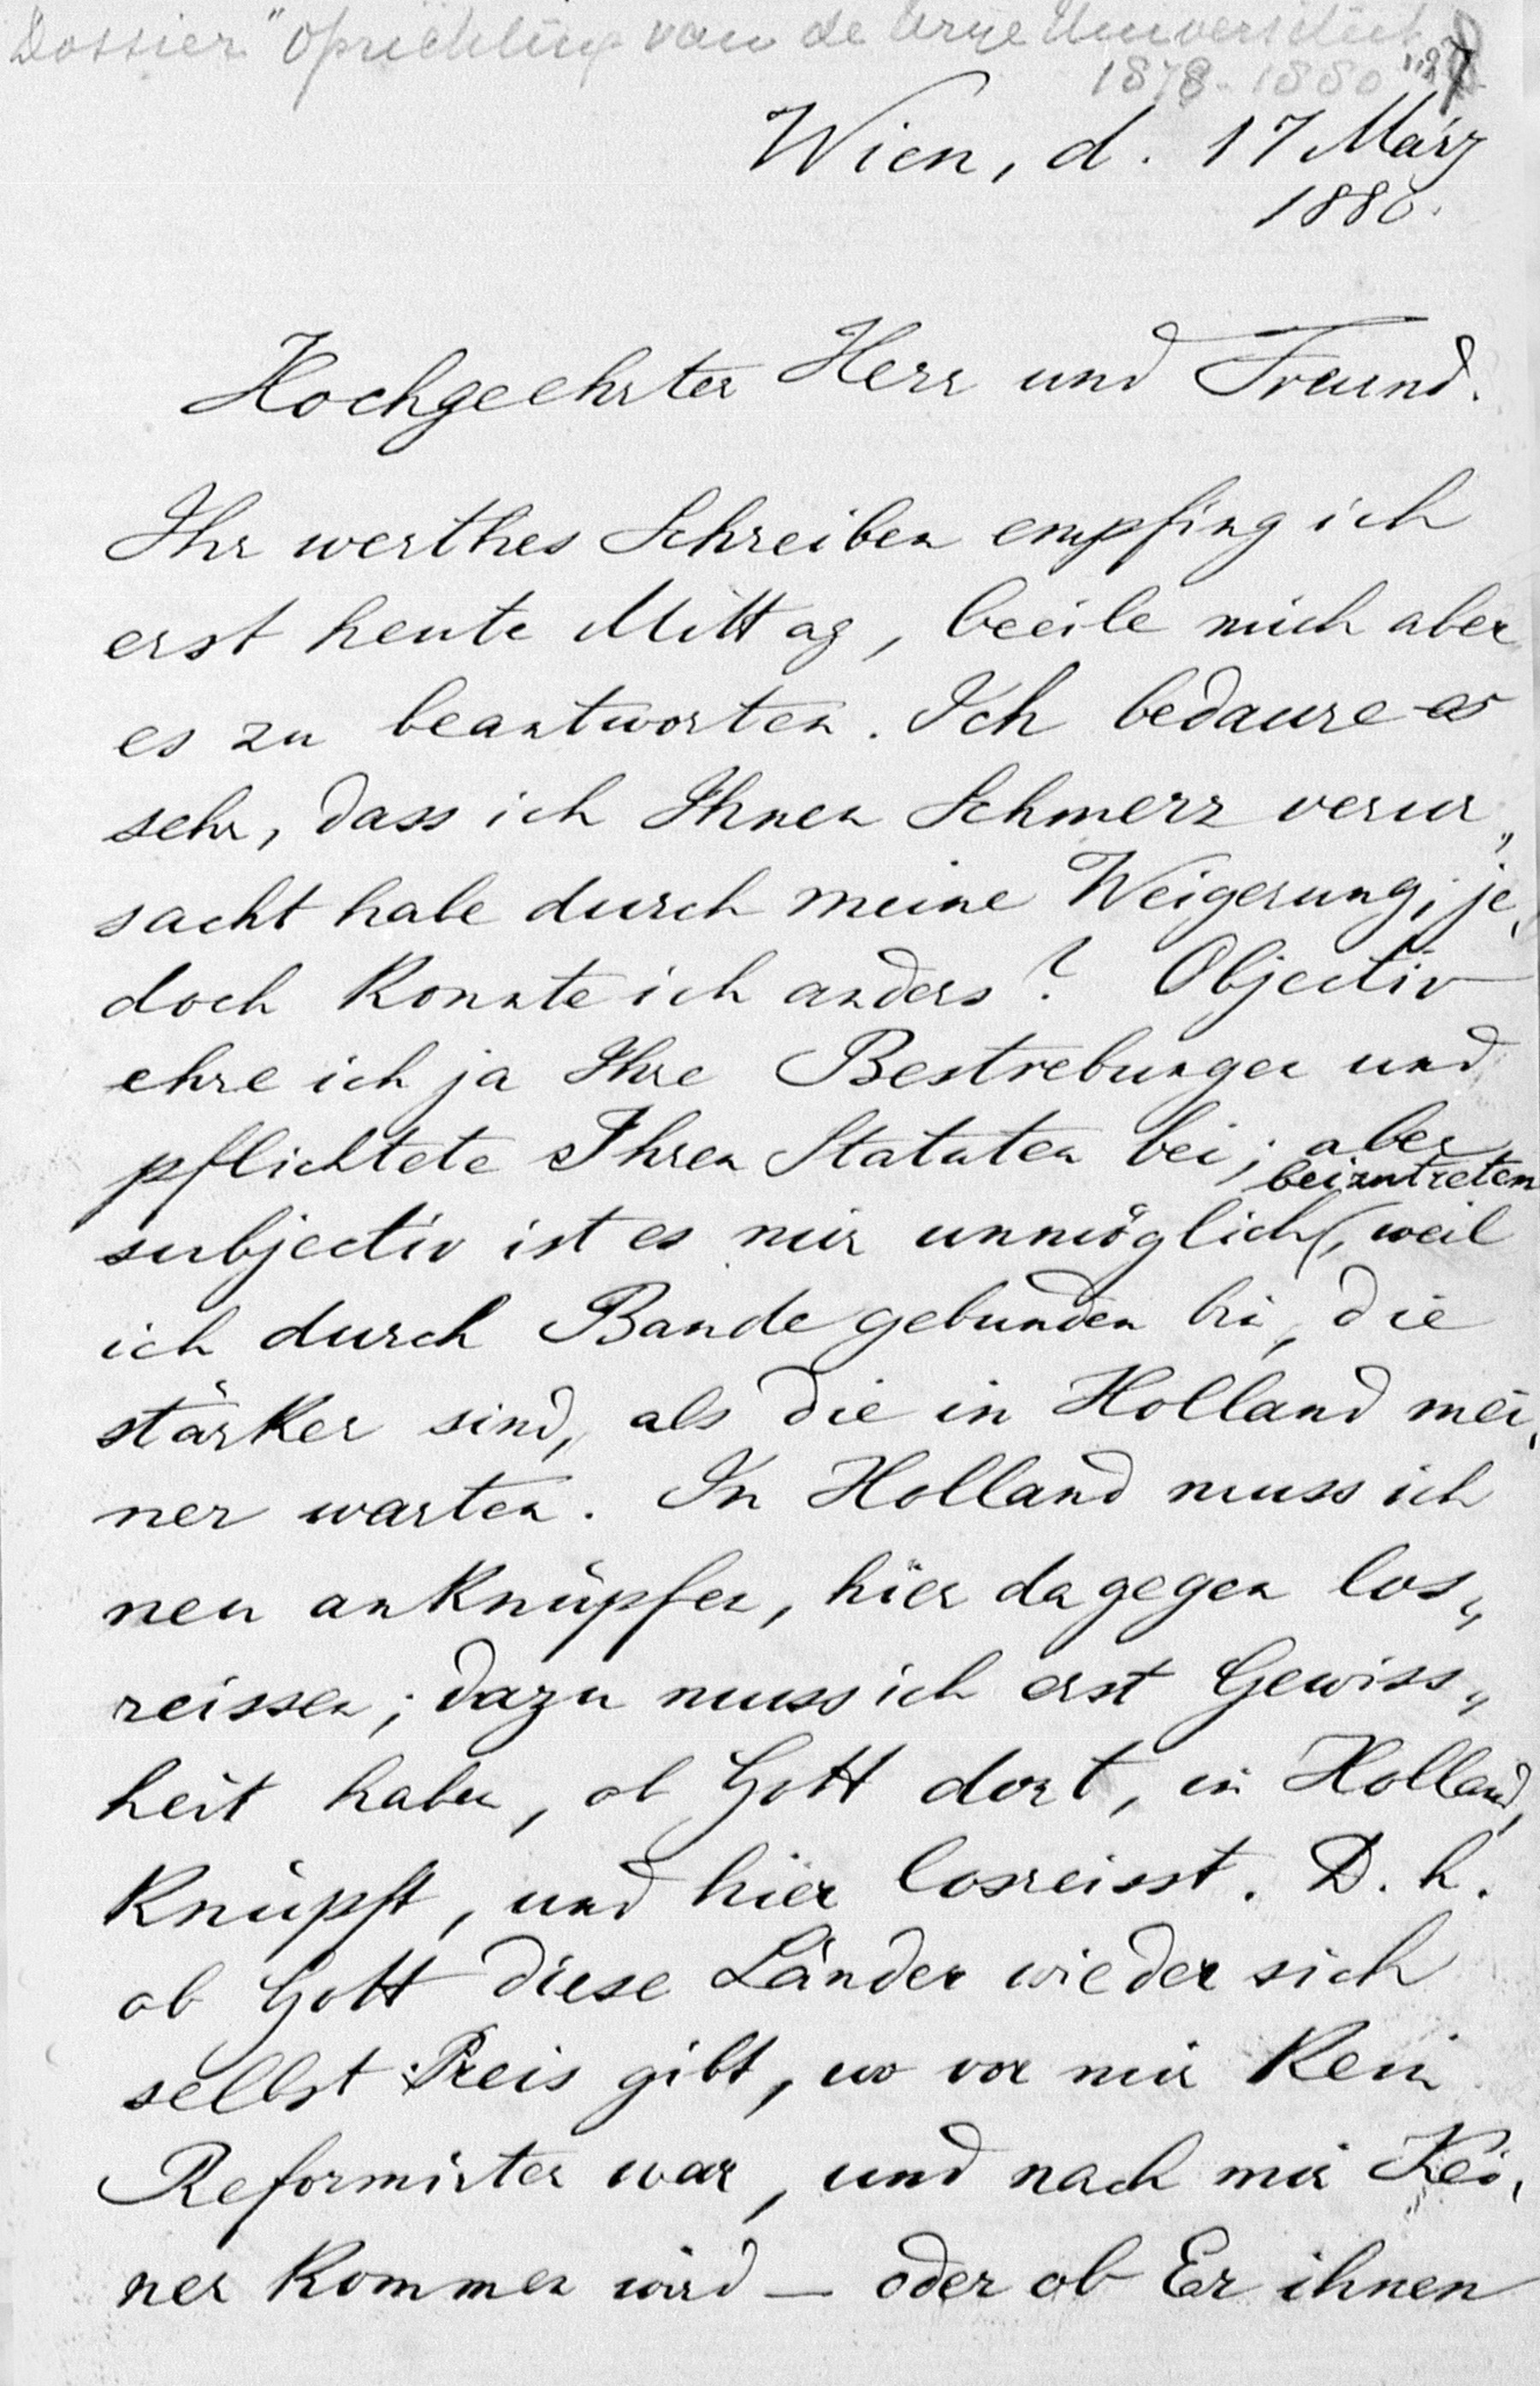 Dossier "Oprichting van de Vrije Universiteit
1878-1880"
Wien, d. 17 März
1880.
Hochgeehrter Herr und Freund.
Ihr werthes Schreiben empfing ich
erst heute Mittag, beeile mich aber
es zu beantworten. Ich bedaure es
sehr, dass ich Ihnen Schmerz verur„
sacht habe durch meine Weigerung; je„
doch konnte ich anders? Objectiv
ehre ich ja Ihre Bestrebungen und
pflichtete Ihren Statuten bei; aber
beizutreten
subjectiv ist es mir unmöglich, weil
ich durch Bande gebunden bin, die
stärker sind, als die in Holland mei„
ner warten. In Holland muss ich
neu anknüpfen, hier dagegen los„
reissen; dazu muss ich erst Gewiss„
heit haben, ob Gott dort, in Holland,
knüpft, und hier losreisst. D. h.
ob Gott diese Länder wieder sich
selbst Preis gibt, wo vor mir kein
Reformirter war, und nach mir kei„
ner kommen wird — oder ob Er ihnen